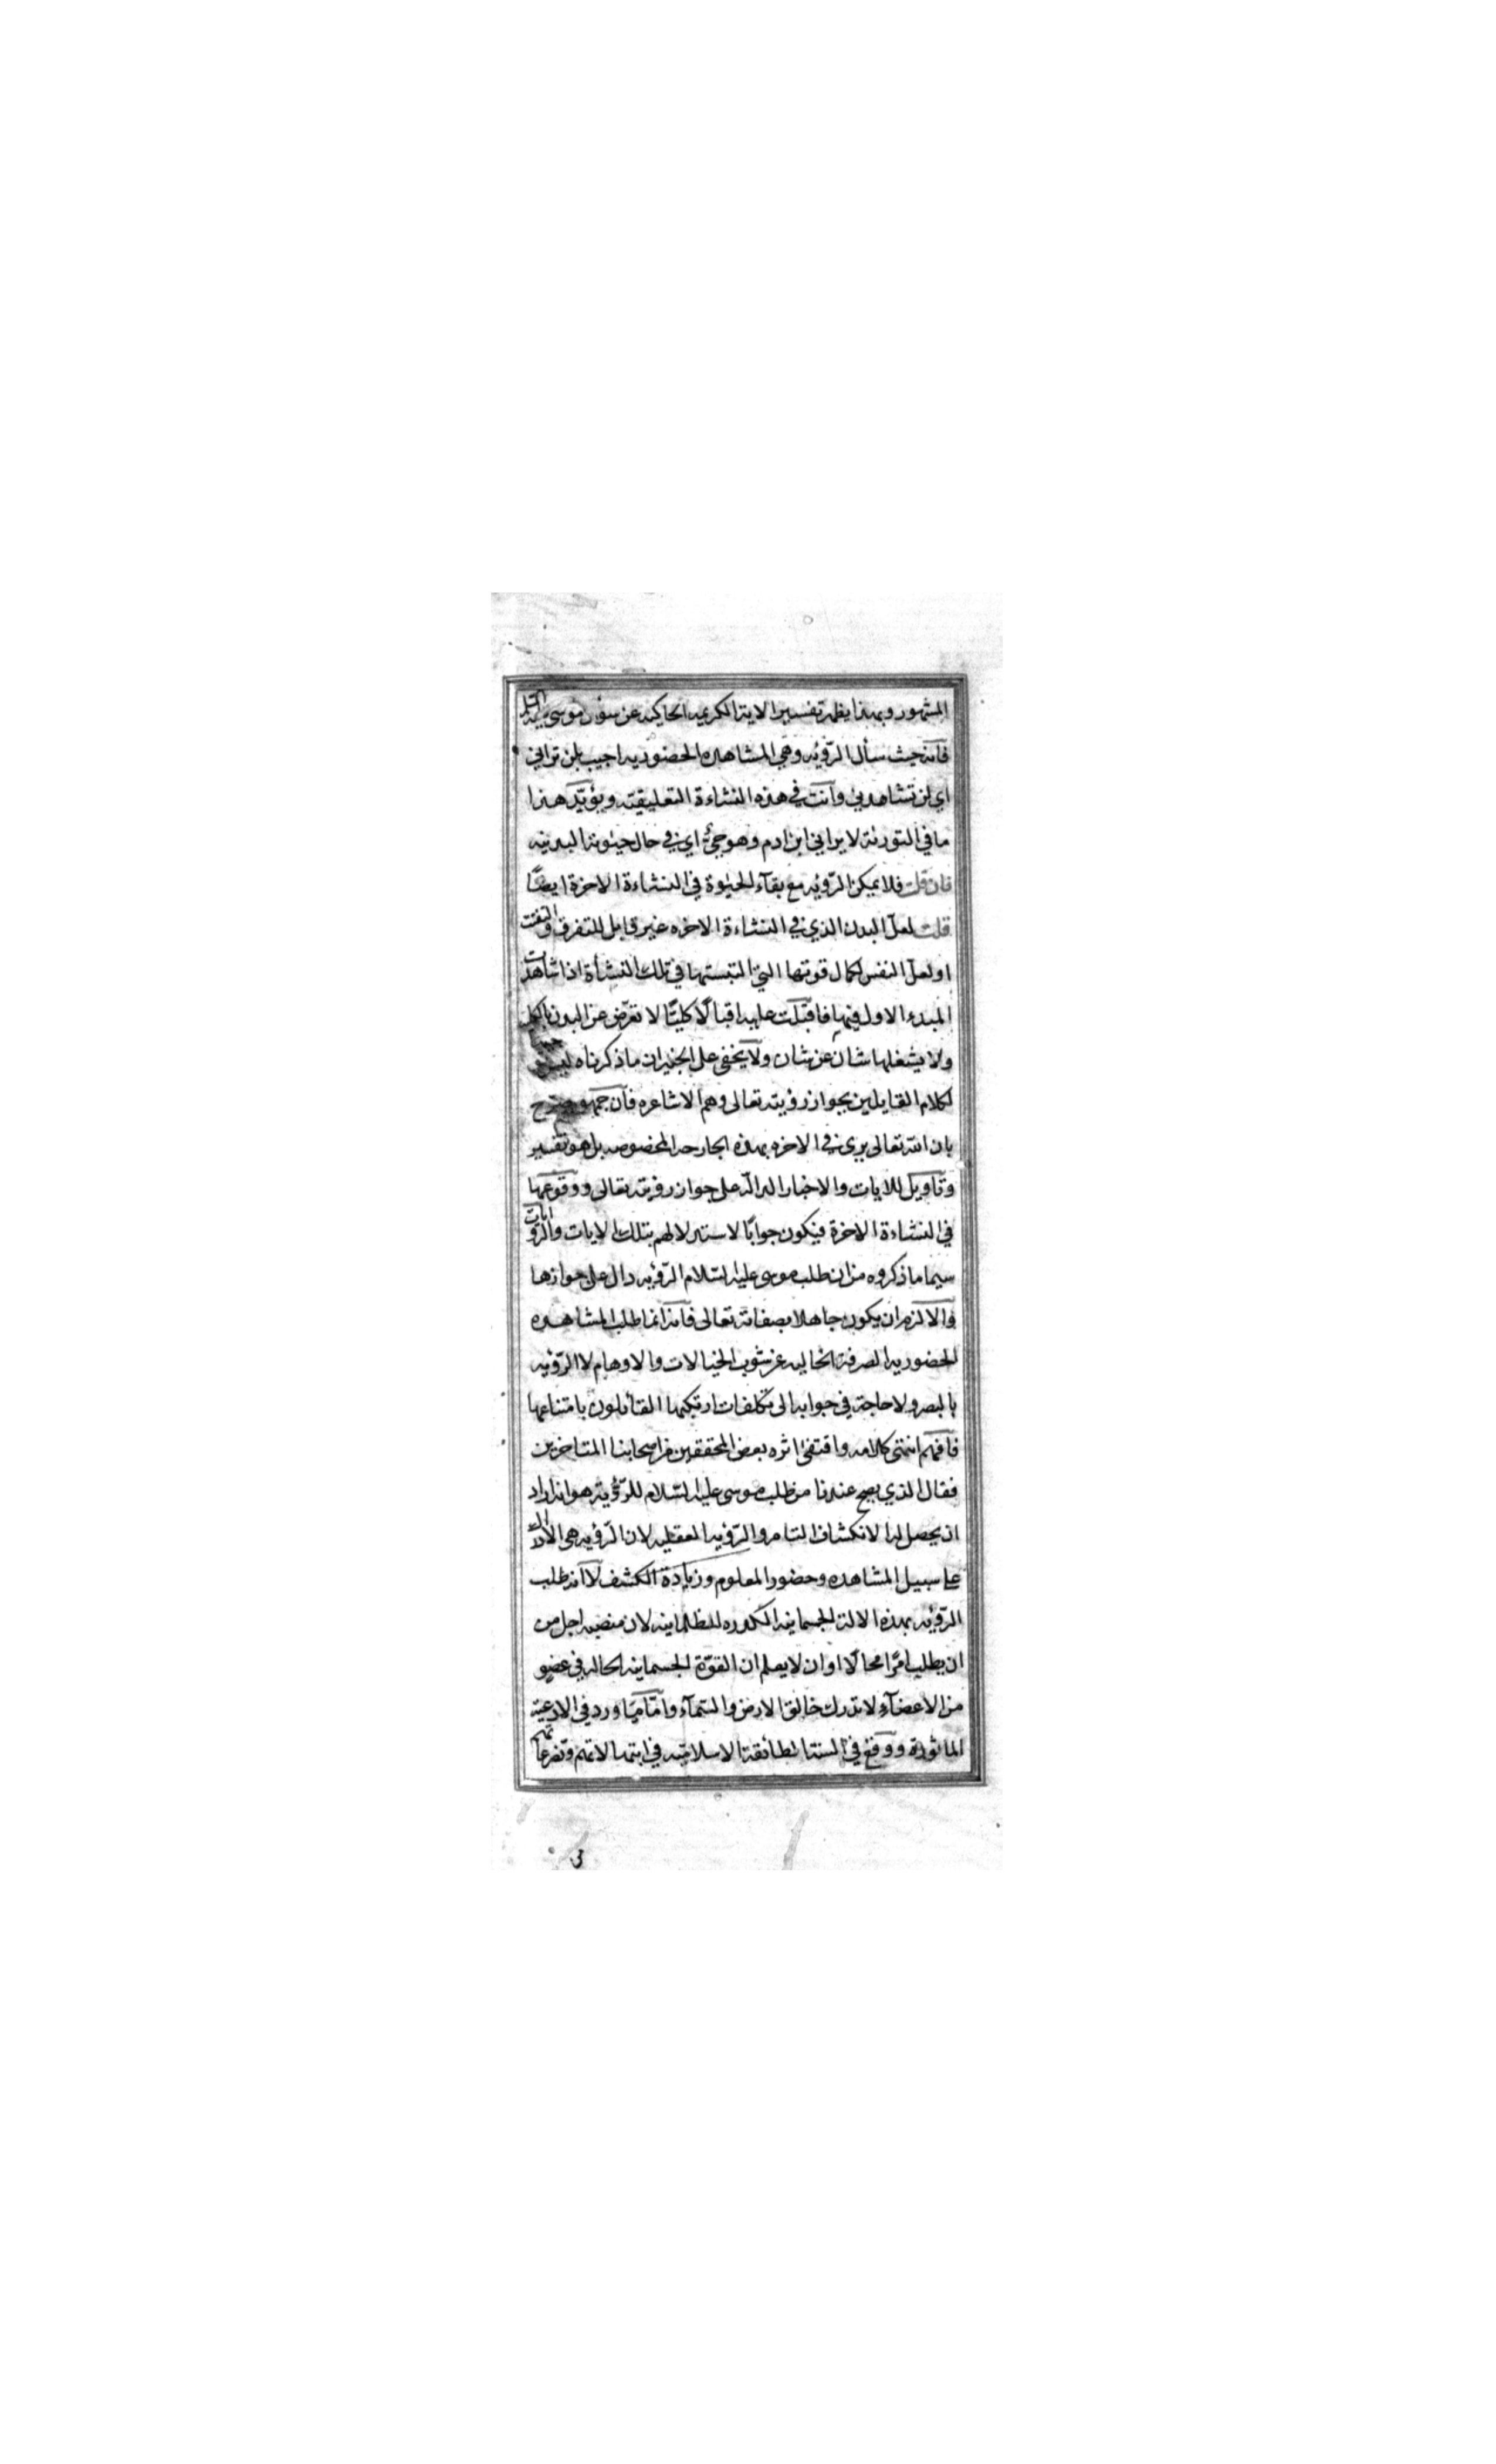 المشهور وبهذا يظهر تفسير الاية الكريمه الحاكيه عن سؤال موسى عليه السلام
فانه حيث سأل الرؤيه وهي المشاهده الحضوريه اجيب بلن تراني
اي لن تشاهدني وانت في هذه النشاءة التعليقيه ويؤيد هذا
ما في التورية لا يراني ابن ادم وهو حي اي في حال حيوته البدنيه
فان قلت فلا يمكن الرؤيه مع بقآء الحيوة في النشاءة الاخرة ايضا
قلت لعل البدن الذي في النشاءة الاخره غير قابل للتفرق والتفتت
او لعل النفس لكمال قوتها التي اكتسبتها في تلك النشأة اذا شاهدت
المبدء الاول فيها فاقبلت عليه اقبالًا كليًا لا تعرض عن البدن بالكل
ولا يشغلها شان عن شان ولا يخفى على الخبير ان ما ذكرناه ليس
لكلام القايلين بجواز رؤيته تعالى وهم الاشاعره فان جمهورهم صرح
بان الله تعالى يرى في الاخره بهذه الجارحه المخصوصه بل هو تفسير
وتاويل للايات والاخبار الدالة على جواز رؤيته تعالى ووقوعها
في النشاءة الاخرة فيكون جوابًا لاستدلالهم بتلك الايات والروايات
سيما ما ذكروه من ان طلب موسى عليه السلام الرؤيه دال على جوازها
والا لزم ان يكون جاهلا بصفاته تعالى فانه انما طلب المشاهده
الحضوريه الصرفة الخاليه عن شوب الخيالات والاوهام لا الرؤيه
بالبصر ولا حاجة في جوابه الى تكلفات ارتكبها القائلون بامتناعها
فافهم انتهى كلامه واقتفى اثره بعض المحققين من اصحابنا المتاخرين
فقال الذي يصح عندنا من طلب موسى عليه السلام للرؤية هو انه اراد
ان يحصل له الانكشاف التام والرؤيه العقليه لان الرؤيه هي الادراك
على سبيل المشاهده وحضور المعلوم وزيادة الكشف لا انه طلب
الرؤيه بهذه الالة الجسمانيه الكدره الظلمانيه لان منصبه اجل من
ان يطلب امرًا محالًا او ان لا يعلم ان القوة الجسمانيه الحاله في عضو
من الاعضآء لا تدرك خالق الارض والسمآء واما ما ورد في الادعية
الماثورة ووقع في السنة الطائفة الاسلاميه في ابتهالاتهم وتضرعاتهم